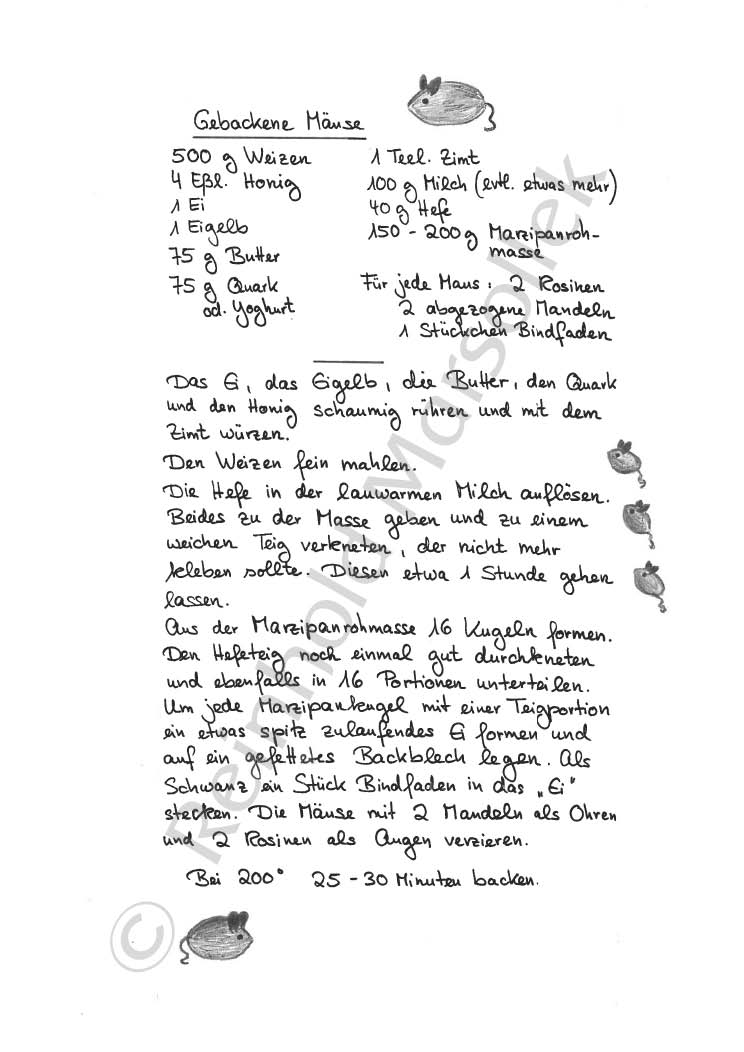 Gebackene Mäuse
500 g Weizen
4 Eßl. Honig
1 Ei
1 Eigelb
75 g Butter
75 g Quark
od. Yoghurt
1 Teel. Zimt
100 g Milch (evtl. etwas mehr)
40 g Hefe
150 - 200 g Marzipanroh-
masse
Für jede Maus : 2 Rosinen
2 abgezogene Mandeln
1 Stückchen Bindfaden
Das Ei, das Eigelb, die Butter, den Quark
und den Honig schaumig rühren und mit dem
Zimt würzen.
Den Weizen fein mahlen.
Die Hefe in der lauwarmen Milch auflösen.
Beides zu der Masse geben und zu einem
weichen Teig verkneten, der nicht mehr
kleben sollte. Diesen etwa 1 Stunde gehen
lassen.
Aus der Marzipanrohmasse 16 Kugeln formen.
Den Hefeteig noch einmal gut durchkneten
und ebenfalls in 16 Portionen unterteilen.
Um jede Marzipankugel mit einer Teigportion
ein etwas spitz zulaufendes Ei formen und
auf ein gefettetes Backblech legen. Als
Schwanz ein Stück Bindfaden in das „Ei"
stecken. Die Mäuse mit 2 Mandeln als Ohren
und 2 Rosinen als Augen verzieren.
Bei 200° 25 - 30 Minuten backen.
© Reinhold Marsollek